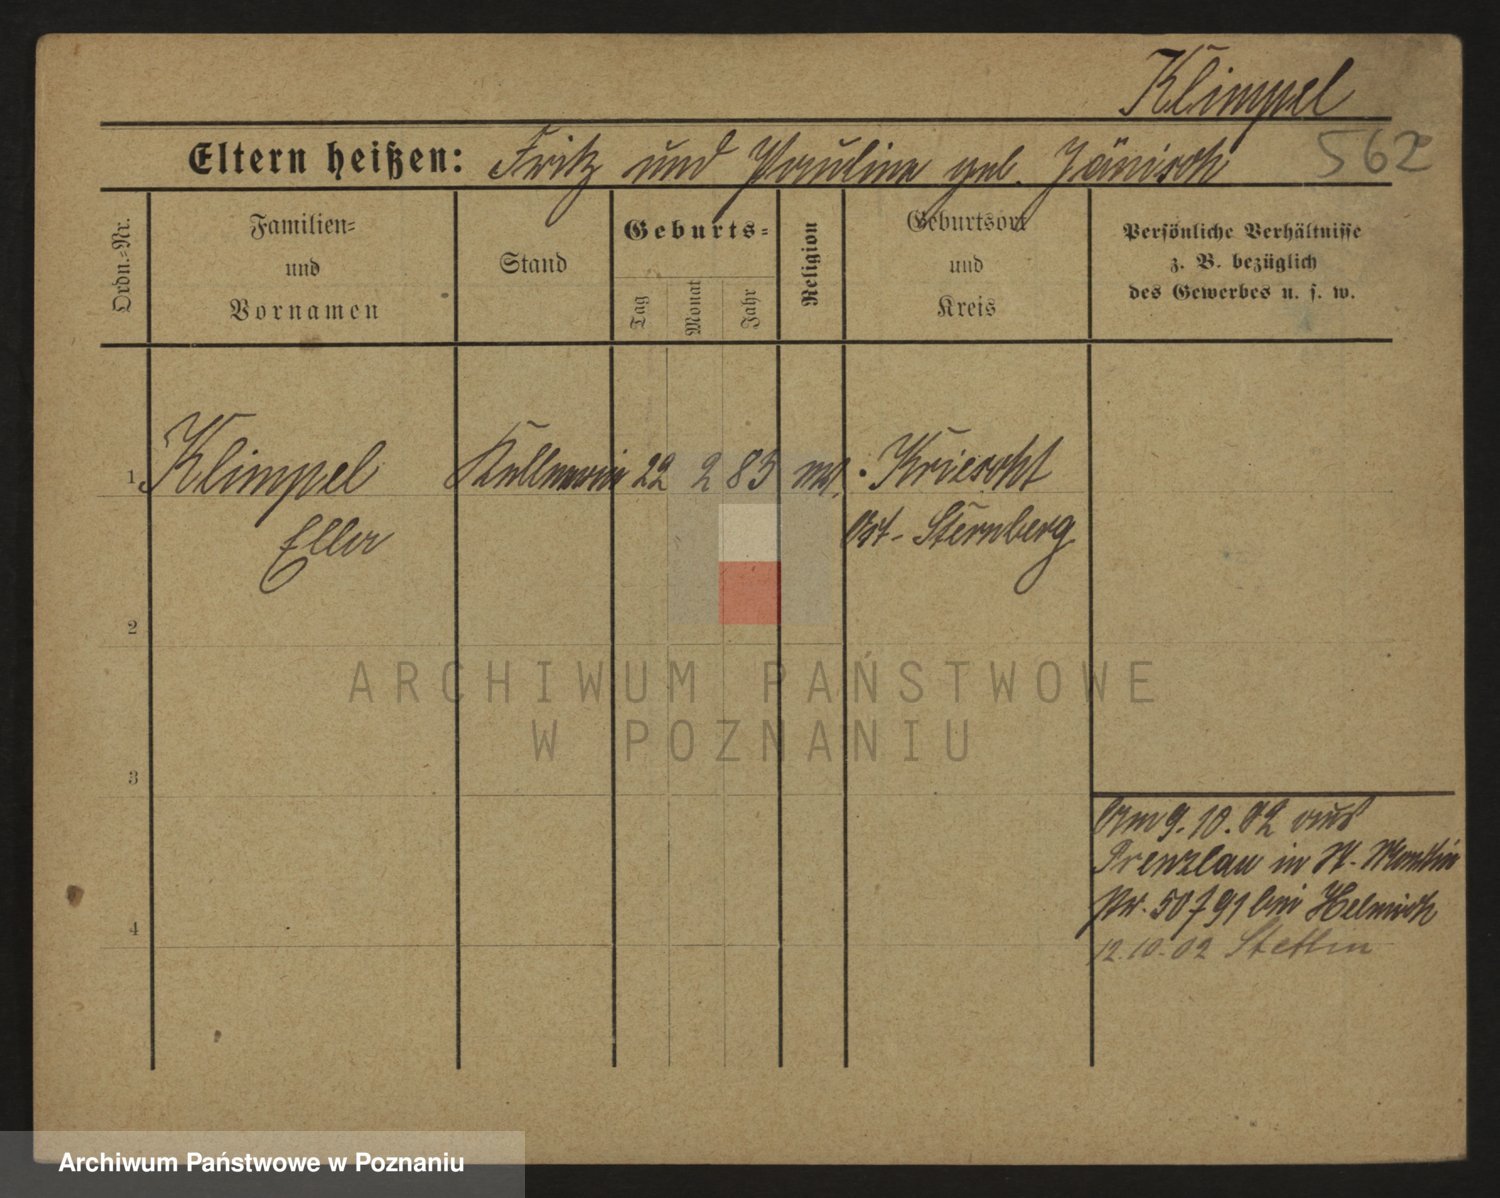 Klimpel
562
Eltern heißen: Fritz und Pauline geb. Jänisch
Ordn.-Nr.
Familien=
und
Vornamen
Stand
Geburts=
Tag
Monat
Jahr
Religion
Geburtsort
und
Kreis
Persönliche Verhältnisse
z. B. bezüglich
des Gewerbes u. s. w.
1 Klimpel Kellnerin 22 2 83 Kriescht
Ella Ost-Sternberg
2
3
4
Am 9.10.02 aus
Prenzlau in St. Martin
Nr. 50 bei Helmich
12.10.02 Stettin
ARCHIWUM PAŃSTWOWE
W POZNANIU
Archiwum Państwowe w Poznaniu